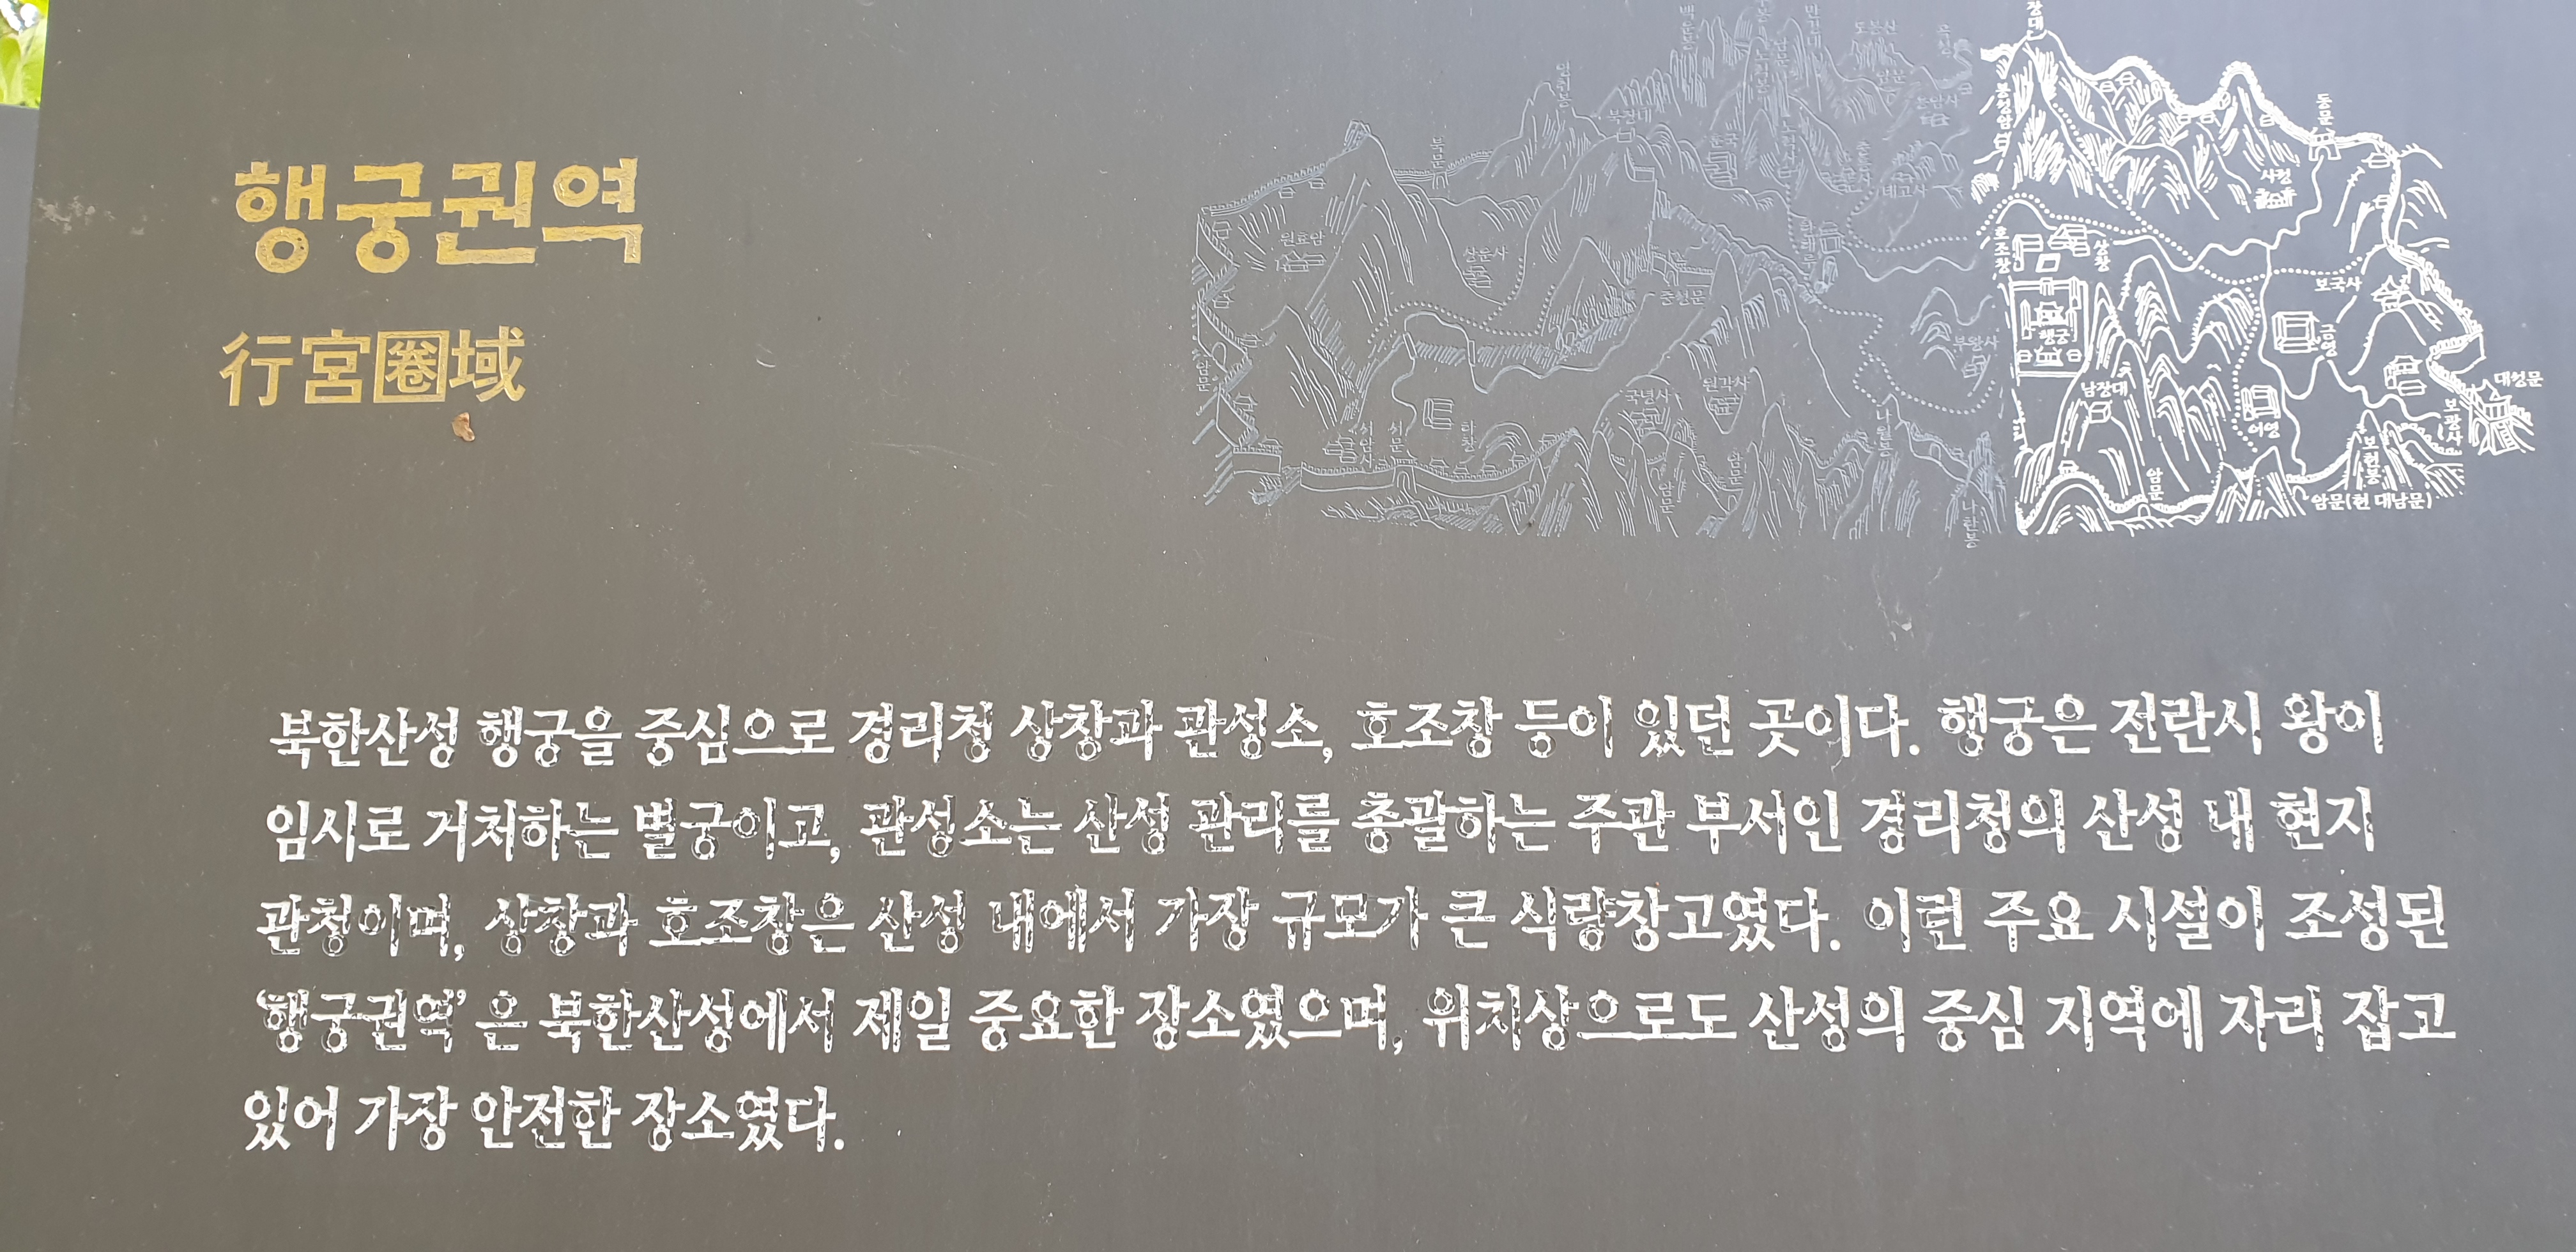 행궁권역
行宮圈域
북한산성 행궁을 중심으로 경리청 상창과 관성소, 호조창 등이 있던 곳이다. 행궁은 전란시 왕이
임시로 거처하는 별궁이고, 관성소는 산성 관리를 총괄하는 주관 부서인 경리청의 산성 내 현지
관청이며, 상창과 호조창은 산성 내에서 가장 규모가 큰 식량창고였다. 이런 주요 시설이 조성된
‘행궁권역’ 은 북한산성에서 제일 중요한 장소였으며, 위치상으로도 산성의 중심 지역에 자리 잡고
있어 가장 안전한 장소였다.
장대
동문
봉성암
북문
북장대
도봉산
원효암
상운사
중성문
호조창
상창
보국사
행궁
금영
남장대
어영
대성문
보광사
보현봉
암문(현 대남문)
암문
국녕사
원각사
부왕사
서암사
서문
하창
암문
암문
암문
나월봉
나한봉